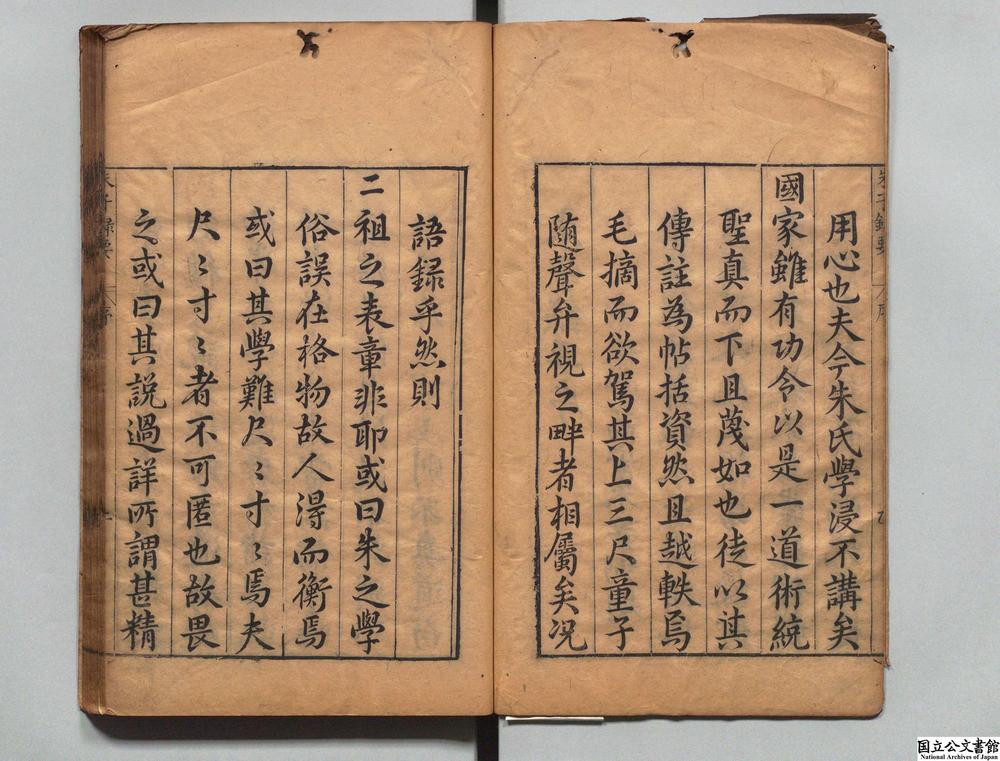 用心也夫今朱氏學浸不講矣
國家雖有功令以是一道術統
聖真而下且蔑如也徒以其
傳註為帖括資然且越軼焉
毛摘而欲駕其上三尺童子
随聲弁視之畔者相屬矣况
語録乎然則
二祖之表章非耶或曰朱之學
俗誤在格物故人得而衡焉
或曰其學難尺〻寸〻焉夫
尺〻寸〻者不可匿也故畏
之或曰其説過詳所謂甚精
朱子録要
序
国立公文書館
National Archives of Japan